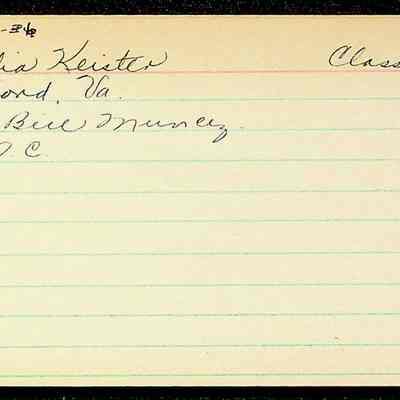 -36
lia Keister Class
ond, Va.
Bill Muncey
D.C.